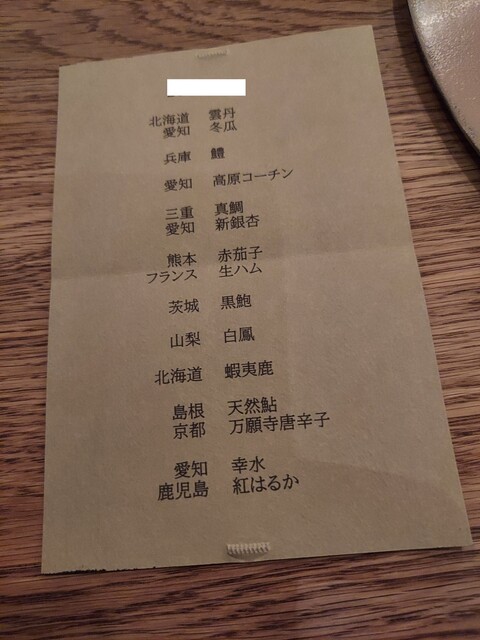 北海道 雲丹
愛知 冬瓜
兵庫 鱧
愛知 高原コーチン
三重 真鯛
愛知 新銀杏
熊本 赤茄子
フランス 生ハム
茨城 黒鮑
山梨 白鳳
北海道 蝦夷鹿
島根 天然鮎
京都 万願寺唐辛子
愛知 幸水
鹿児島 紅はるか